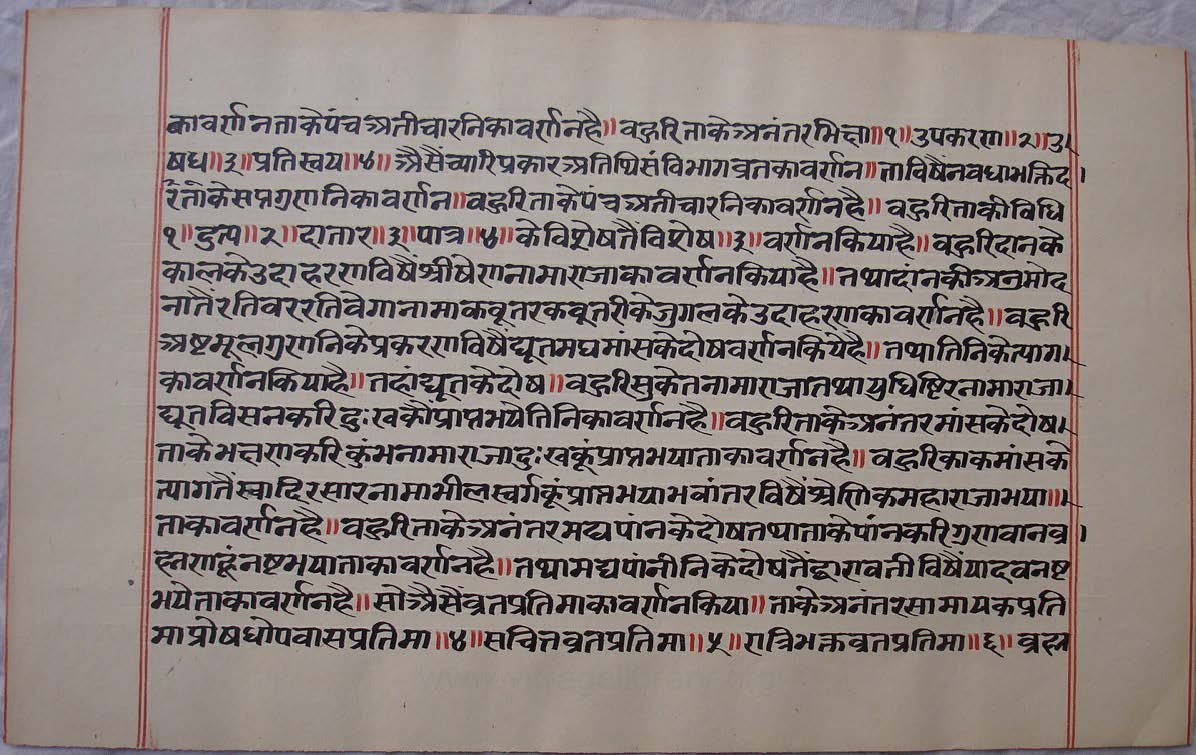 कावर्णनताकेपंचअतीचारनिकावर्णनहै॥वहुरिताकेअनंतरभिक्षा॥१॥उपकरण॥२॥उ।
षध॥३॥प्रतिस्रय॥४॥अैसैंच्यारिप्रकारअतिथिसंविभागव्रतकावर्णन॥ताविषैंनवधाभक्तिद।
रंताकेसप्तगुणनिकावर्णन॥वहुरिताकेपंचअतीचारनिकावर्णनहै॥वहुरिताकीविधि
१॥द्रुत्प॥२॥दातार॥३॥पात्र॥४॥केविशेषतैंविशेष॥३॥वर्णनकियाहै॥वहुरिदानके
कालकेउदाहरणविषैंश्रीषेणनामाराजाकावर्णनकियाहै॥तथादानकीअनुमोद
नातैंरतिवररतिवेगानामाकवूतरकवूतरीकेजुगलकेउदाहरणकावर्णनहै॥वहुरि
अष्टमूलगुणनिकेप्रकरणविषैंद्यूतमद्यमांसकेदोषवर्णनकियेहै॥तथातिनिकेत्याग।
कावर्णनकियाहै॥तहांद्यूतकेदोष॥वहुरिसुकेतनामाराजातथायुधिष्टिरनामाराजा।
द्यूतविसनकरिदुःखकौंप्राप्तभयेतिनिकावर्णनहै॥वहुरिताकेअनंतरमांसकेदोष।
ताकेभक्षणकरिकुंभनामाराजादुःखकूंप्राप्तभयाताकावर्णनहै॥वहुरिकाकमांसके
त्यागतैंखादिरसारनामाभीलस्वर्गकूंप्राप्तभयाभवांतरविषैंश्रेणिकमहाराजाभया॥।
ताकावर्णनहै॥वहुरिताकेअनंतरमद्यपांनकेदोषतथाताकेपांनकरिगुणवानव्र।
ह्मणहूंनष्टभयाताकावर्णनहै॥तथामद्यपांनीनिकेदोषतैंद्वारावतीविषैंयादवनष्ट
भयेताकावर्णनहै॥सोअैसैंव्रतप्रतिमाकावर्णनकिया॥ताकेअनंतरसामायकप्रति
माप्रोषधोपवासप्रतिमा॥४॥सचित्तव्रतप्रतिमा॥५॥रात्रिभक्तव्रतप्रतिमा॥६॥व्रह्म